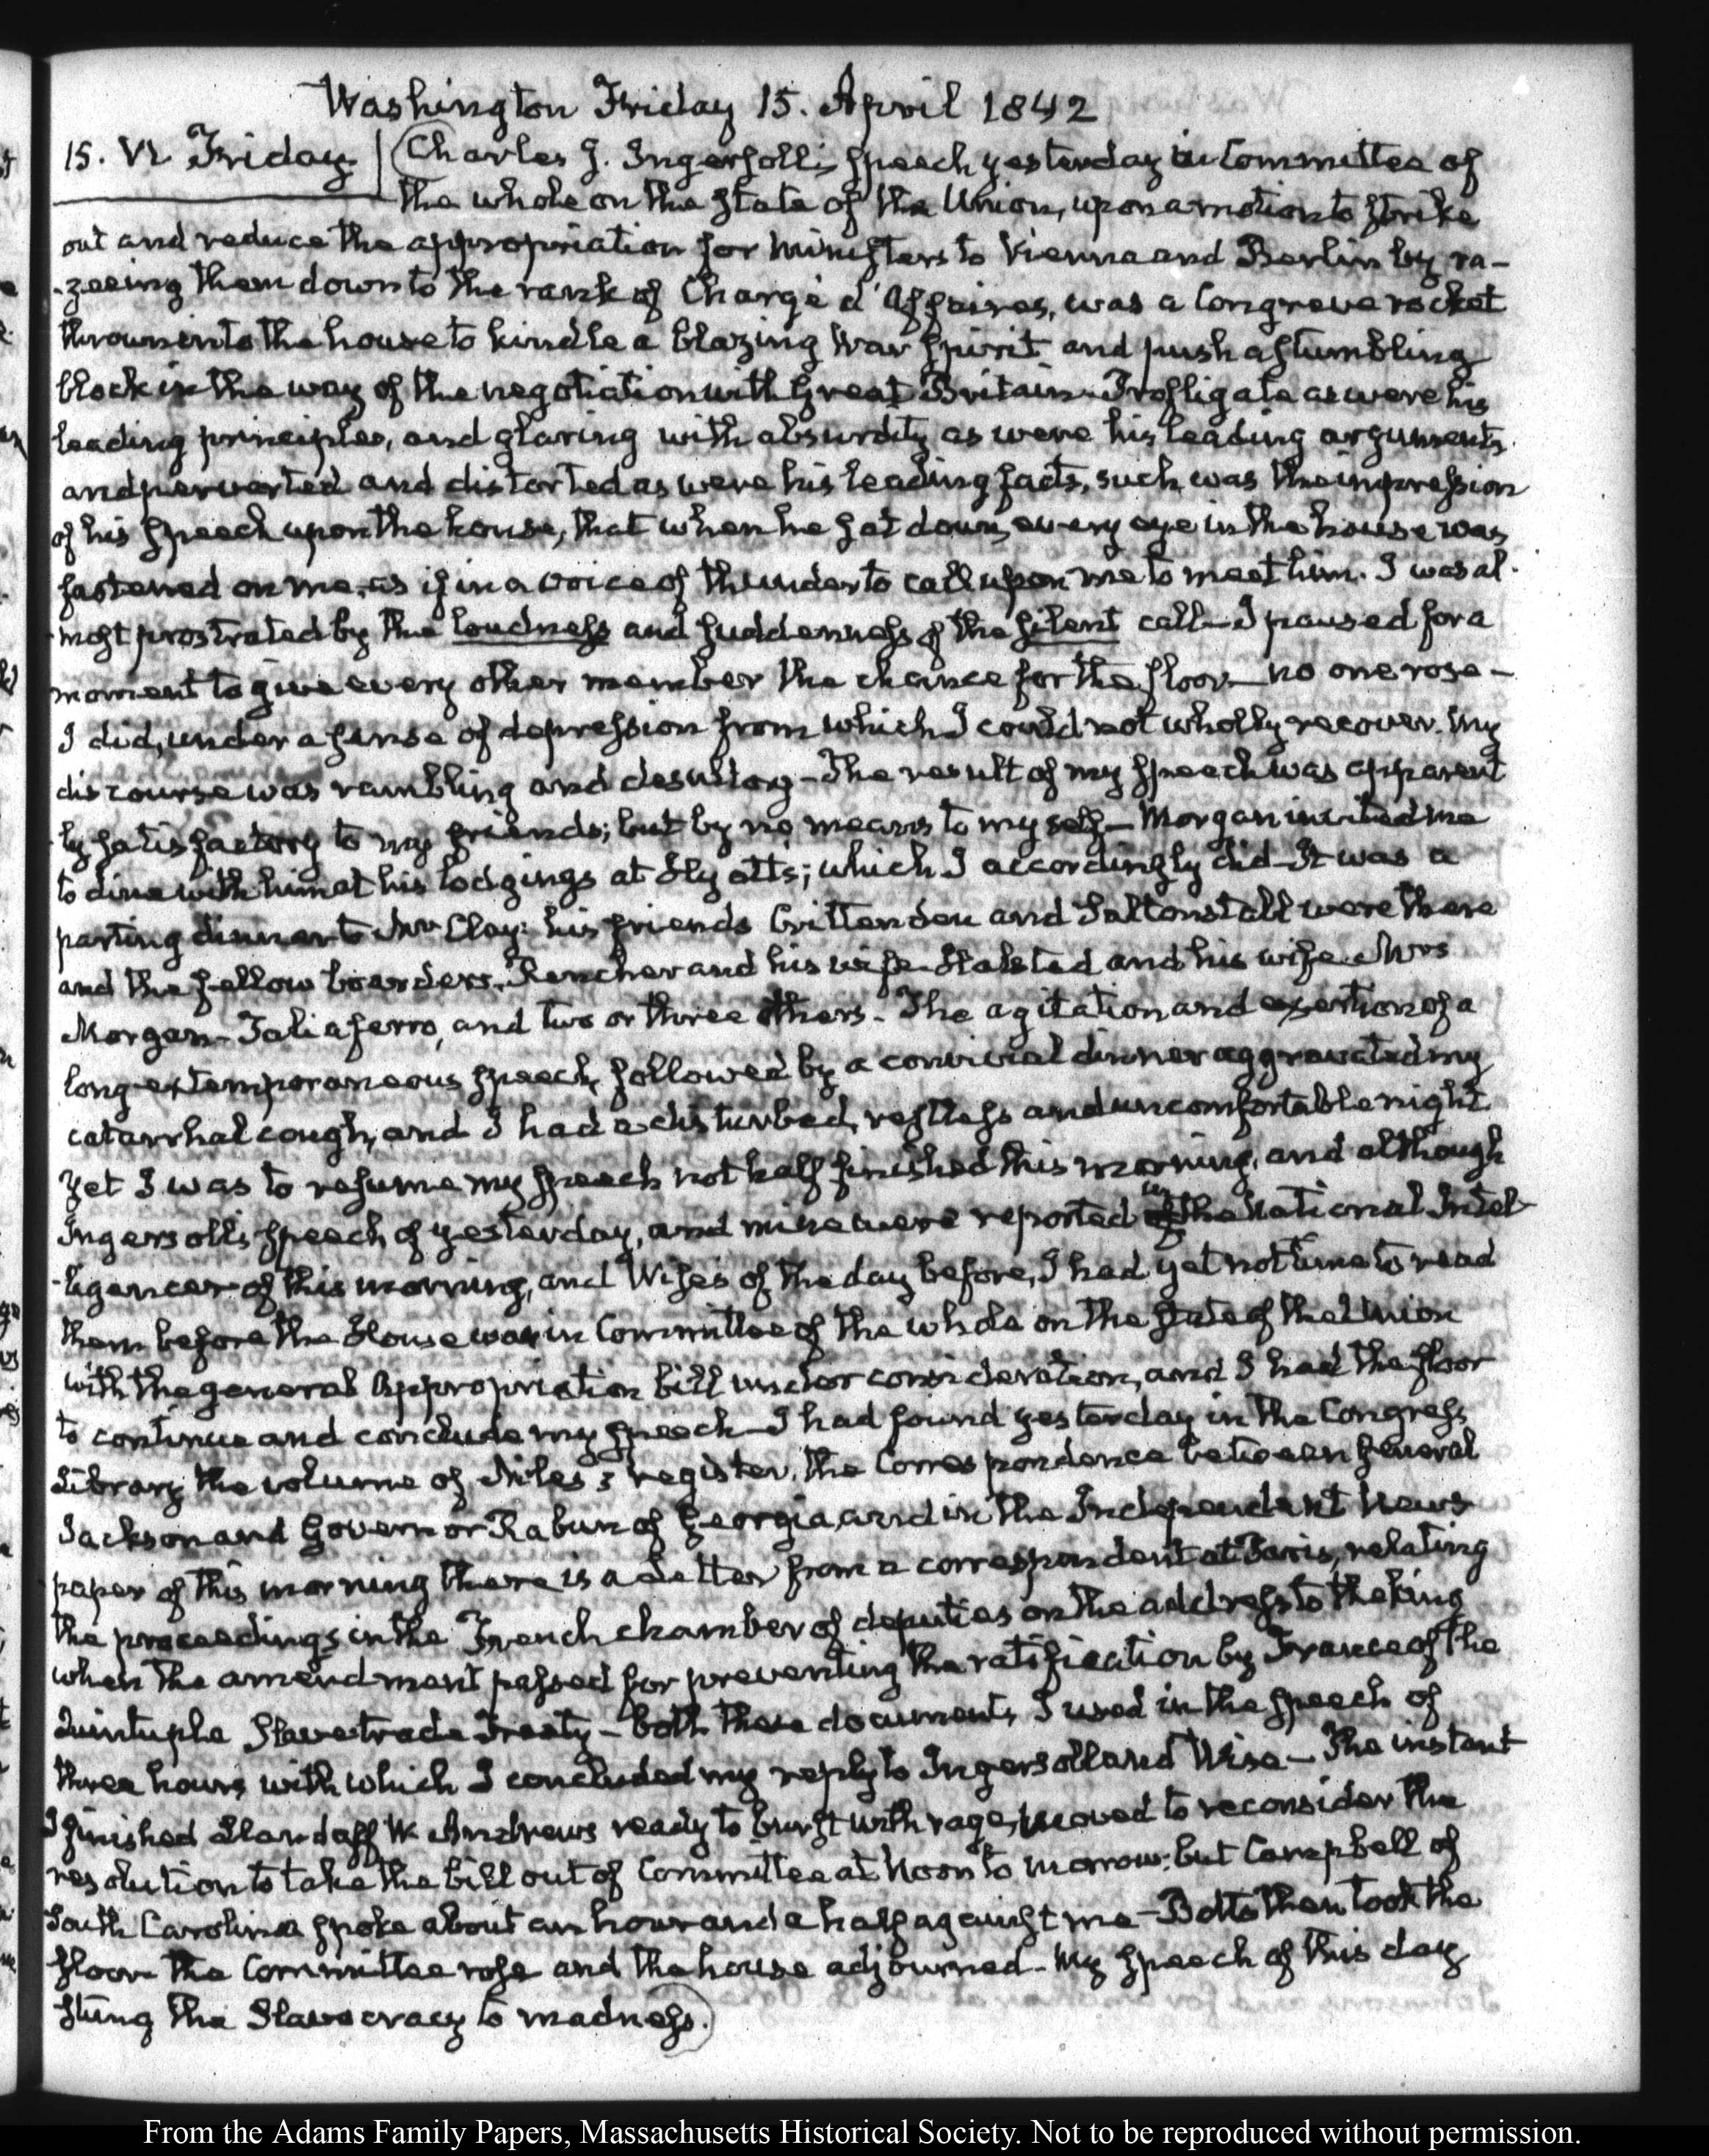 Washington Friday 15. April 1842
15. VI. Friday. Charles J. Ingersoll's speech yesterday in Committee of
the whole on the State of the Union, upon a motion to strike
out and reduce the appropriation for Ministers to Vienna and Berlin by ra-
-zeeing them down to the rank of Chargé d'Affaires, was a Congreve rocket
thrown into the house to kindle a blazing War spirit and push a stumbling
block in the way of the negotiation with Great Britain. Profligate as were his
leading principles, and glaring with absurdity as were his leading arguments,
and perverted and distorted as were his leading facts, such was the impression
of his speech upon the house, that when he sat down, every eye in the house was
fastened on me, as if in a voice of thunder to call upon me to meet him. I was al-
-most prostrated by the loudness and suddenness of the silent call—I paused for a
moment to give every other member the chance for the floor—no one rose—
I did, under a sense of depression from which I could not wholly recover. My
discourse was rambling and desultory—The result of my speech was apparent
-ly satisfactory to my friends; but by no means to myself—Morgan invited me
to dine with him at his lodgings at Hyatts; which I accordingly did—It was a
parting dinner to Mr Clay: his friends Crittenden and Saltonstall were there
and the fellow boarders. Rencher and his wife—Halsted and his wife Mrs
Morgan—Taliaferro, and two or three others—The agitation and exertion of a
long extemporaneous speech, followed by a convivial dinner aggravated my
catarrhal cough, and I had a disturbed, restless and uncomfortable night.
Yet I was to resume my speech not half finished this morning, and although
Ingersoll's speech of yesterday, and mine were reported in the National Intel-
-ligencer of this morning, and Wise's of the day before, I had yet not time to read
them before the House was in Committee of the whole on the State of the Union
with the general Appropriation bill under consideration, and I had the floor
to continue and conclude my speech—I had found yesterday in the Congress
Library the volume of Niles's register, the Correspondence between General
Jackson and Governor Rabun of Georgia, and in the Independent News
paper of this morning there is a Letter from a correspondent at Paris, relating
the proceedings in the French chamber of deputies on the address to the King
when the amendment passed for preventing the ratification by France of the
Quintuple Slavetrade Treaty—both these documents I used in the speech of
three hours with which I concluded my reply to Ingersoll and Wise—The instant
I finished Landaff W. Andrews ready to burst with rage, moved to reconsider the
resolution to take the bill out of Committee at Noon to morrow: but Campbell of
South Carolina spoke about an hour and a half against me—Botts then took the
floor—the Committee rose and the house adjourned—My speech of this day
stung the Slavocracy to madness.
From the Adams Family Papers, Massachusetts Historical Society. Not to be reproduced without permission.